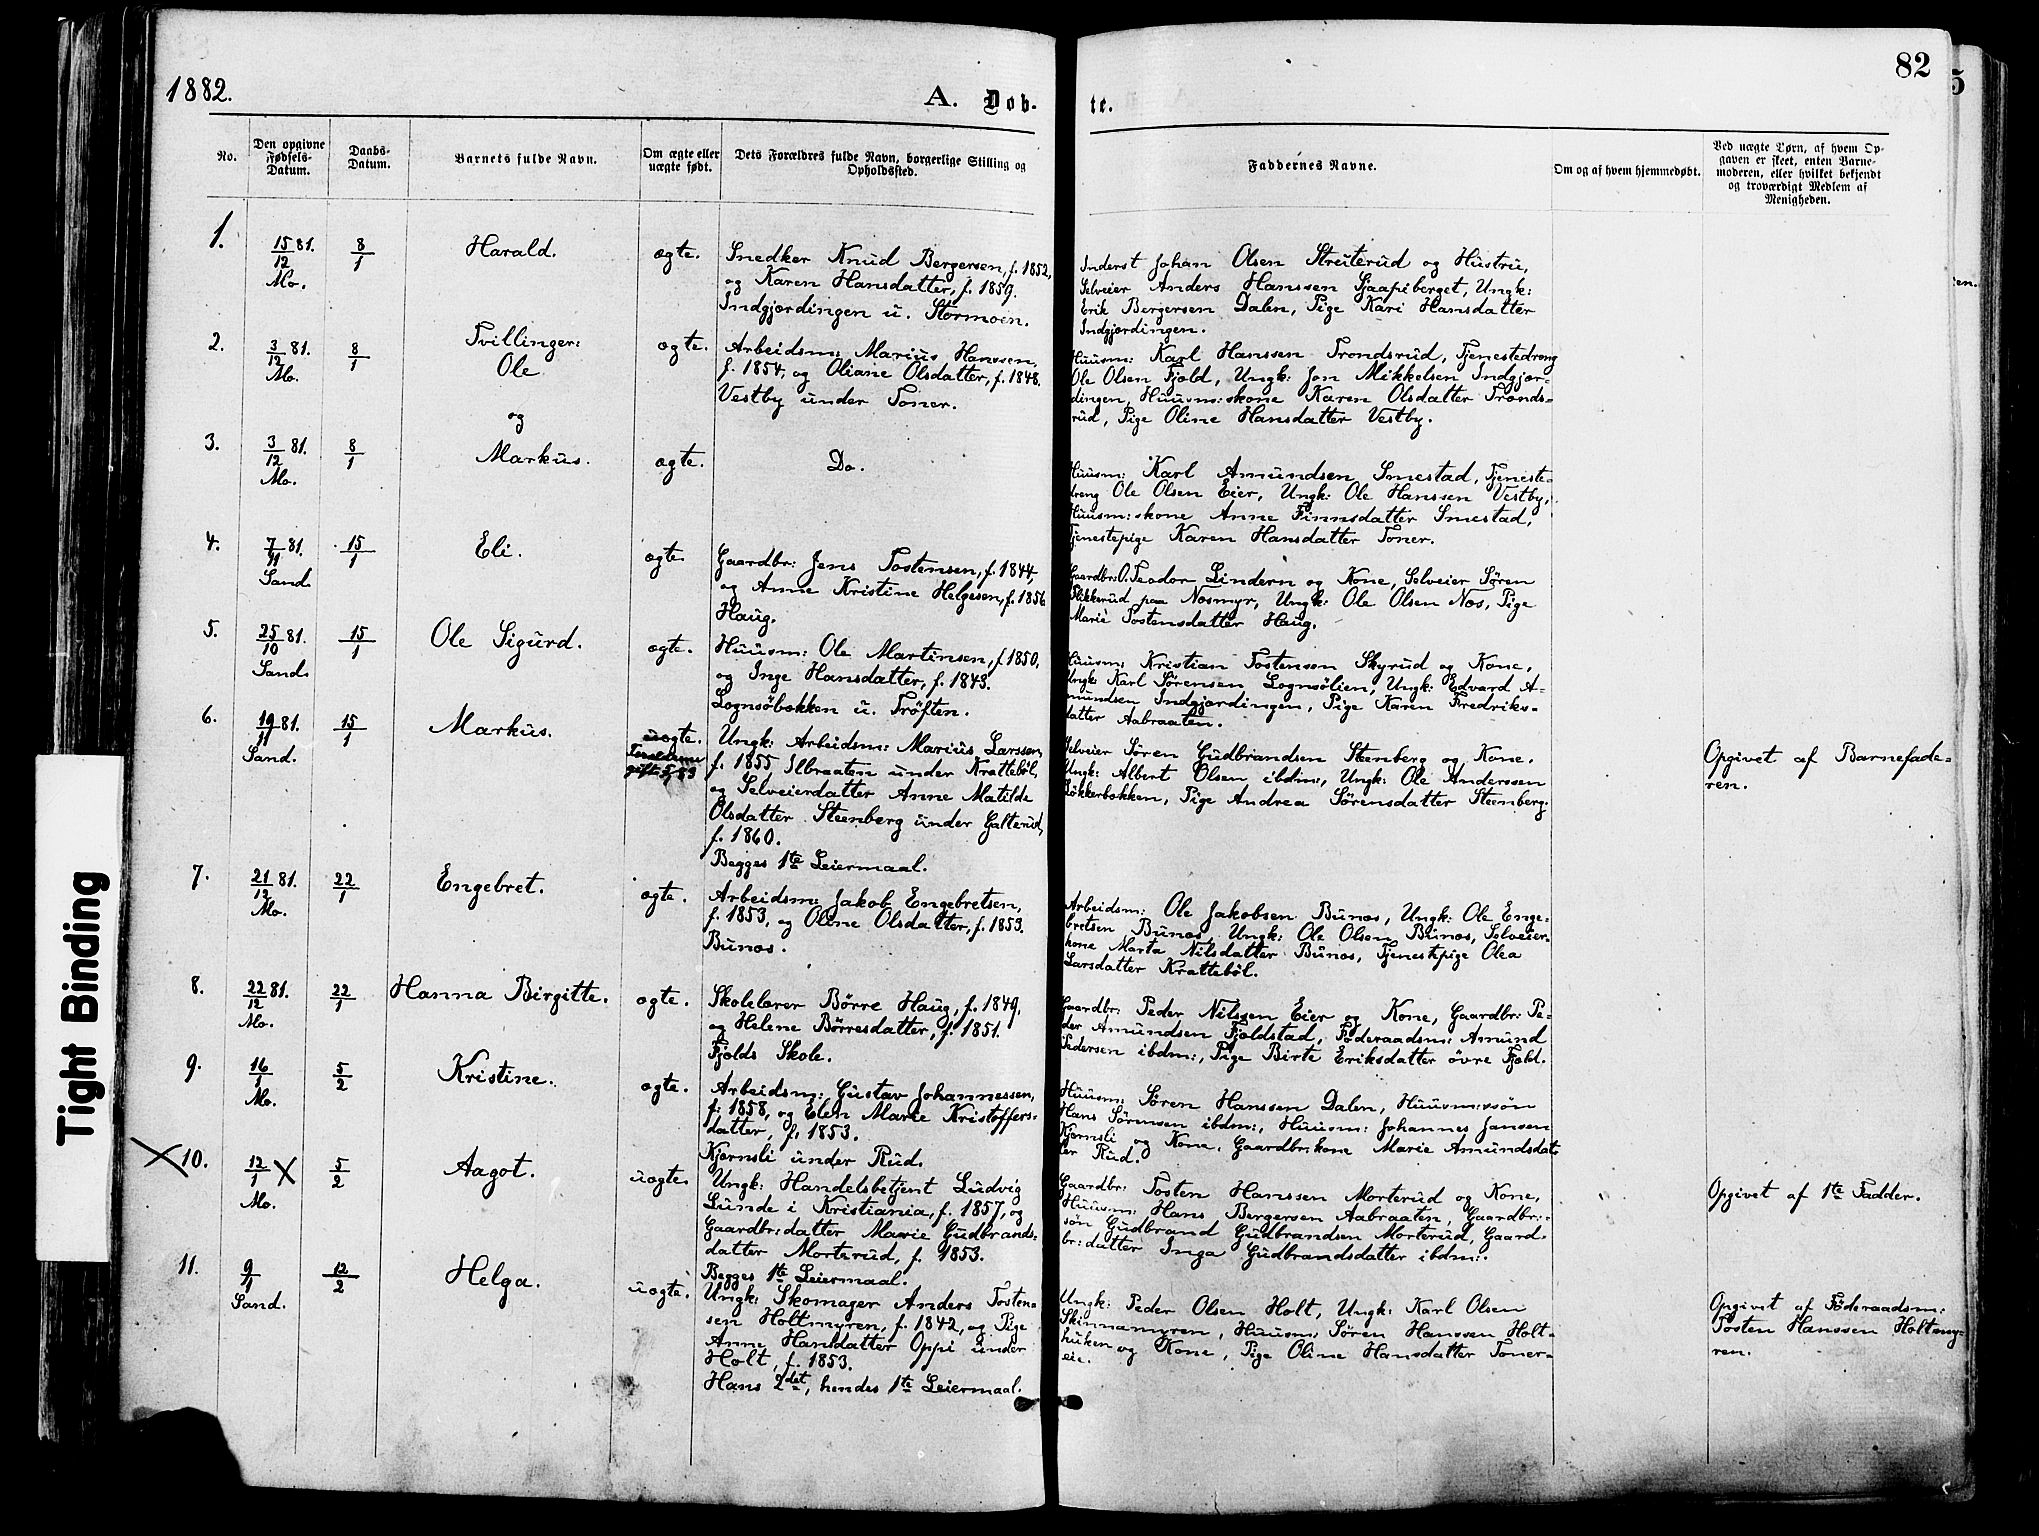 1882.
A. Døb-
te.
82
5
No.
Den opgivne
Fødsels-
Datum.
Daabs-
Datum.
Barnets fulde Navn.
Om ægte eller
uægte født.
Dets Forældres fulde Navn, borgerlige Stilling og
Opholdssted.
Faddernes Navne.
Om og af hvem hjemmedøbt.
Ved uægte Børn, af hvem Op-
gaven er skeet, enten Barne-
moderen, eller hvilket bekjendt
og troværdigt Medlem af
Menigheden.
1.
15/12 81.
Mo.
8/1
Harald.
ægte.
Snedker Knud Bergersen, f. 1852,
og Karen Hansdatter, f. 1859.
Indgjærdingen u. Stormoen.
Inderst Johan Olsen Streiterud og Hustru,
Selveier Anders Hanssen Sjaapiberget, Ungk:
Erik Bergersen Dalen, Pige Kari Hansdatter
Indgjærdingen.
2.
3/12 81.
Mo.
8/1
Tvillinger:
Ole
og
ægte.
Arbeidsm: Marius Hanssen,
f. 1854, og Oliane Olsdatter, f. 1848.
Vestby under Toner.
Huusm: Karl Hanssen Trondsrud, Tjenestedreng
Ole Olsen Fjæld, Ungk: Jon Mikkelsen Indgjær-
dingen, Huusm:skone Karen Olsdatter Tronds-
rud, Pige Oline Hansdatter Vestby.
3.
3/12 81.
Mo.
8/1
Markus.
ægte.
Do.
Huusm: Karl Amundsen Smestad, Tjeneste-
dreng Ole Olsen Eier, Ungk: Ole Hanssen Vestby,
Huusm:skone Anne Finnsdatter Smestad,
Tjenestepige Karen Hansdatter Toner.
4.
7/11 81.
Sand.
15/1
Eli.
ægte.
Gaardbr: Jens Tostensen, f. 1844,
og Anne Kristine Helgesen, f. 1856
Haug.
Gaardbr: O. Teodor Lindern og Kone, Selveier Søren
Slikkerud paa Næsmyr, Ungk: Ole Olsen Næs, Pige
Marie Tostensdatter Haug.
5.
25/10 81.
Sand.
15/1
Ole Sigurd.
ægte.
Huusm: Ole Martinsen, f. 1850,
og Inge Hansdatter, f. 1843.
Lognsöbakken u. Tröften.
Huusm: Kristian Tostensen Skyrud og Kone,
Ungk: Karl Sørensen Lognsölien, Ungk: Edvard A-
mundsen Indgjærdingen, Pige Karen Fredriks-
datter Aabraaten.
6.
19/11 81.
Sand.
15/1
Markus.
uægte.
Ungk: Arbeidsm: Marius Larssen,
f. 1855, Ilbraaten under Kratteböl,
og Selveierdatter Anne Matilde
Olsdatter Steenberg under Galterud,
f. 1860.
Begges 1te Leiermaal.
Selveier Søren Gudbrandsen Steenberg og Kone,
Ungk: Albert Olsen ibdm:, Ungk: Ole Anderssen
Bökkerbakken, Pige Andrea Sørensdatter Steenberg.
Opgivet af Barnefade-
ren.
7.
21/12 81.
Mo.
22/1
Engebret.
ægte.
Arbeidsm: Jakob Engebretsen,
f. 1853, og Oline Olsdatter, f. 1853.
Bunæs.
Arbeidsm: Ole Jakobsen Bunæs, Ungk: Ole Enge-
bretsen Bunæs, Ungk: Ole Olsen Bunæs, Selveier-
kone Marta Nilsdatter Bunæs, Tjenestepige Olea
Larsdatter Kratteböl.
8.
22/12 81.
Mo.
22/1
Hanna Birgitte.
ægte.
Skolelærer Børre Haug, f. 1849,
og Helene Børresdatter, f. 1851.
Fjælds Skole.
Gaardbr: Peder Nilssen Eier og Kone, Gaardbr: Pe-
der Amundsen Fjældstad, Føderaadsm: Amund
Pedersen ibdm:, Pige Birte Eriksdatter övre Fjæld.
9.
16/1
Mo.
5/2
Kristine.
ægte.
Arbeidsm: Gustav Johannessen,
f. 1858, og Elen Marie Kristoffers-
datter, f. 1853.
Kjærnsli under Rud.
Huusm: Søren Hanssen Dalen, Huusm:søn
Hans Sørensen ibdm:, Huusm: Johannes Jansen
Kjærnsli og Kone, Gaardbr:kone Marie Amundsdat-
ter Rud.
X 10.
12/1 X
Mo.
5/2
Aagot.
uægte.
Ungk: Handelsbetjent Ludvig
Lunde i Kristiania, f. 1857, og
Gaardbr:datter Marie Gudbrands-
datter Morterud, f. 1853.
Begges 1te Leiermaal.
Gaardbr: Tosten Hanssen Morterud og Kone,
Huusm: Hans Bergersen Aabraaten, Gaardbr:-
søn Gudbrand Gudbrandsen Morterud, Gaard-
br:datter Inga Gudbrandsdatter ibdm:.
Opgivet af 1te Fadder.
11.
9/1
Sand.
12/2
Helga.
uægte.
Ungk: Skomager Anders Tosten-
sen Holtmyren, f. 1842, og Pige
Anne Hansdatter Oppi under
Holt, f. 1853.
Hans 2det, hendes 1te Leiermaal.
Ungk: Peder Olsen Holt, Ungk: Karl Olsen
Skinnamyren, Huusm: Søren Hanssen Holt-
huken og Kone, Pige Oline Hansdatter Toner-
eie.
Opgivet af Föderaadsm:
Tosten Hanssen Holtmy-
ren.
Tight Binding